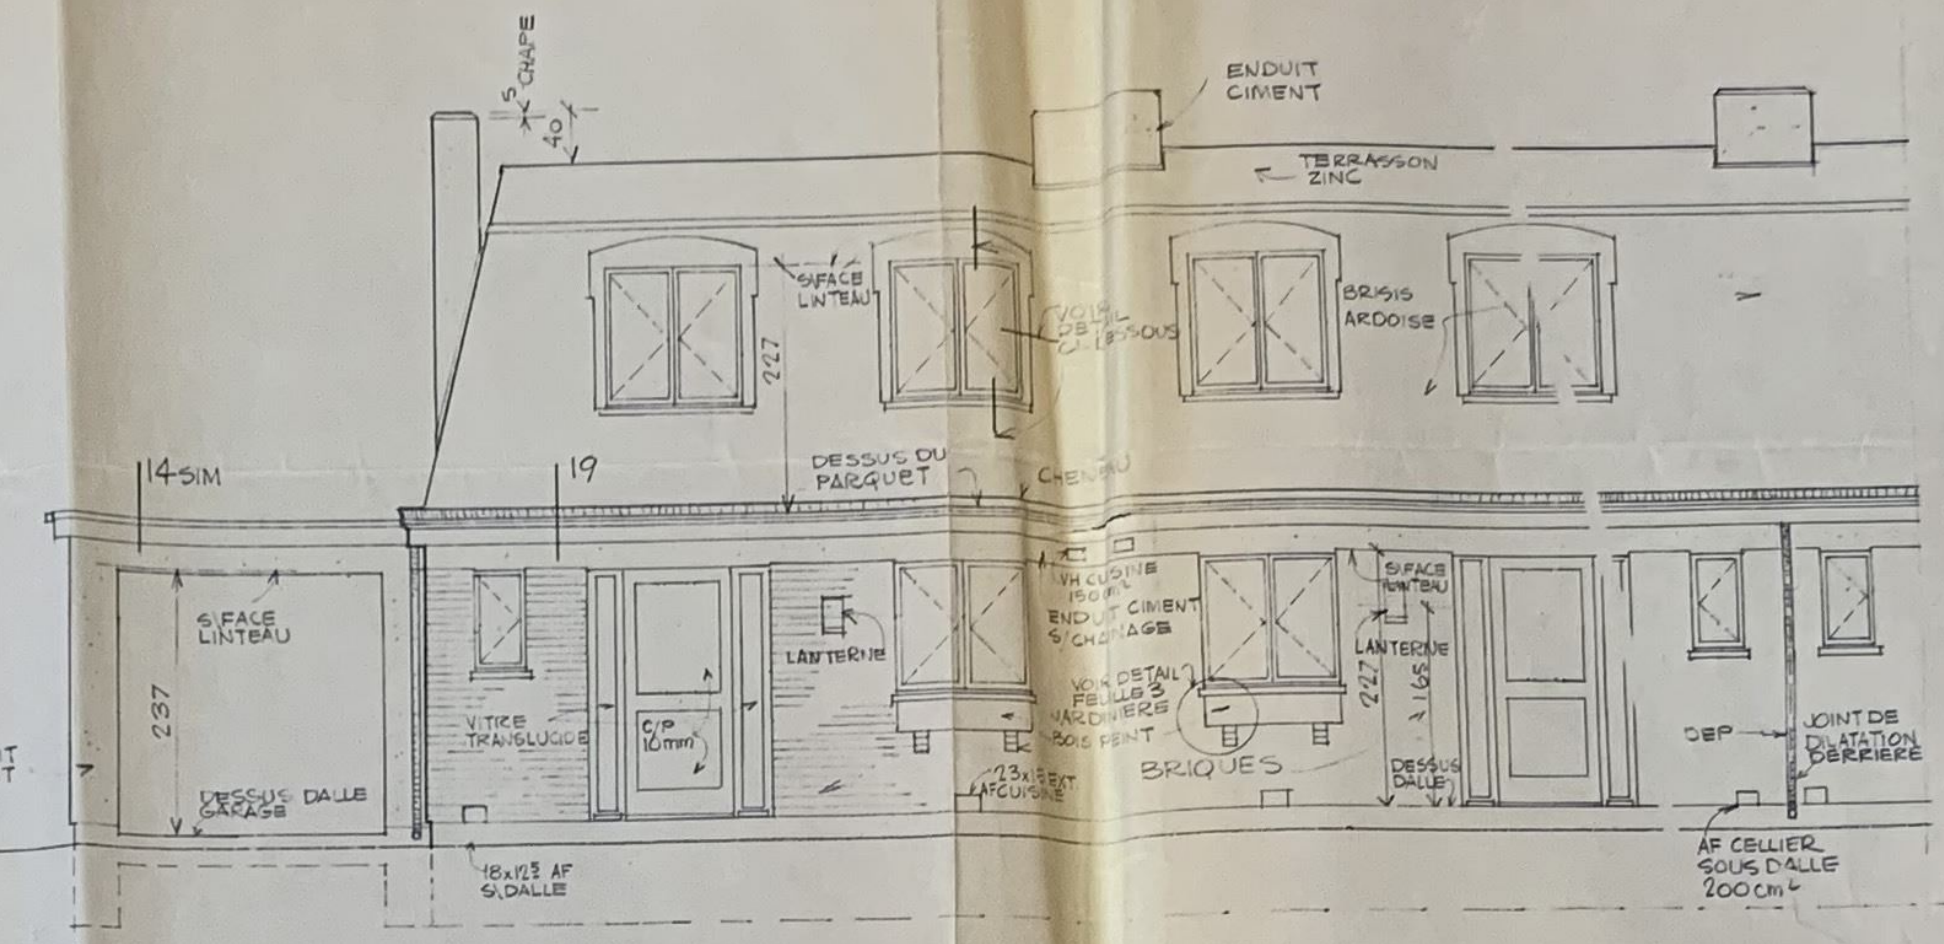 5 CHAPE
40
ENDUIT
CIMENT
TERRASSON
ZINC
S/FACE
LINTEAU
227
VOIR
DETAIL
CI-DESSOUS
BRISIS
ARDOISE
14 SIM
19
DESSUS DU
PARQUET
CHENEAU
S/FACE
LINTEAU
237
DESSUS DALLE
GARAGE
VITRE
TRANSLUCIDE
C/P
10mm
LANTERNE
VH CUSINE
150cm²
ENDUIT CIMENT
S/CHAINAGE
VOIR DETAIL
FEUILLE 3
JARDINIERE
BOIS PEINT
BRIQUES
EXT.
AF CUISINE
S/FACE
LINTEAU
LANTERNE
227
165
DESSUS
DALLE
DEP
JOINT DE
DILATATION
DERRIERE
18x12⁵ AF
S/DALLE
AF CELLIER
SOUS DALLE
200cm²